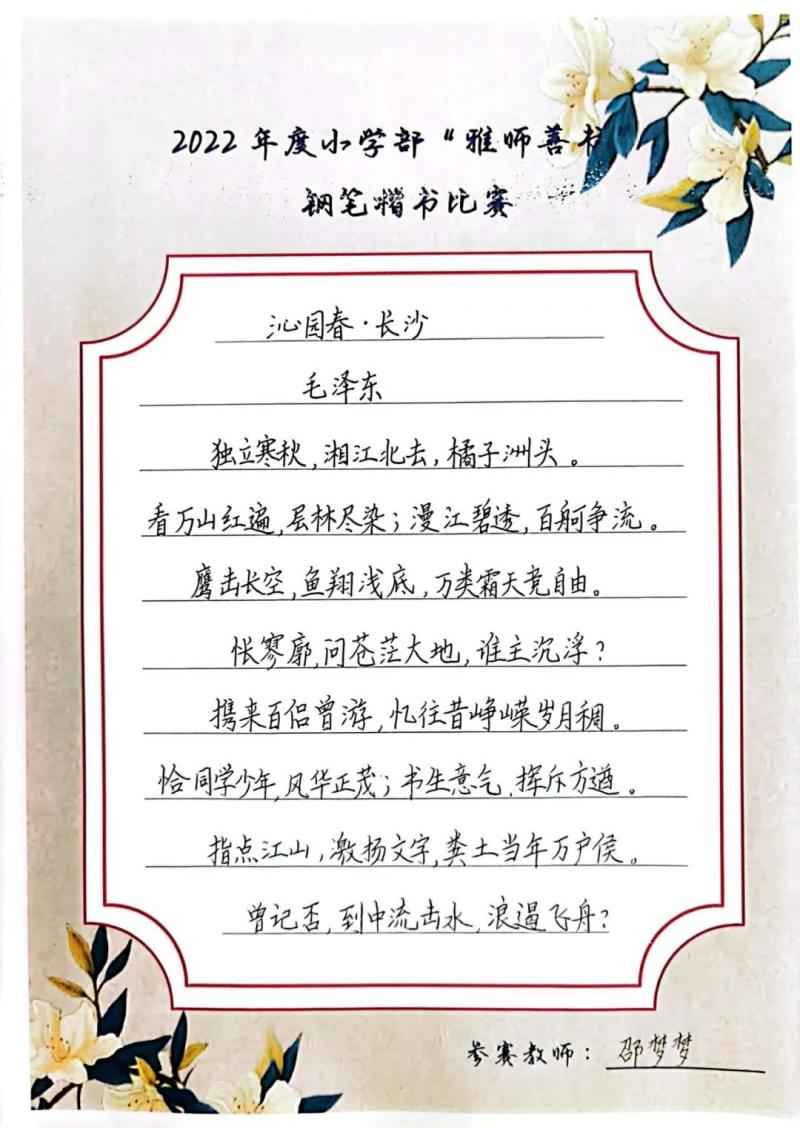 2022年度小学部“雅师善书
钢笔楷书比赛
沁园春·长沙
毛泽东
独立寒秋,湘江北去,橘子洲头。
看万山红遍,层林尽染;漫江碧透,百舸争流。
鹰击长空,鱼翔浅底,万类霜天竞自由。
怅寥廓,问苍茫大地,谁主沉浮?
携来百侣曾游,忆往昔峥嵘岁月稠。
恰同学少年,风华正茂;书生意气,挥斥方遒。
指点江山,激扬文字,粪土当年万户侯。
曾记否,到中流击水,浪遏飞舟?
参赛教师:邵梦梦